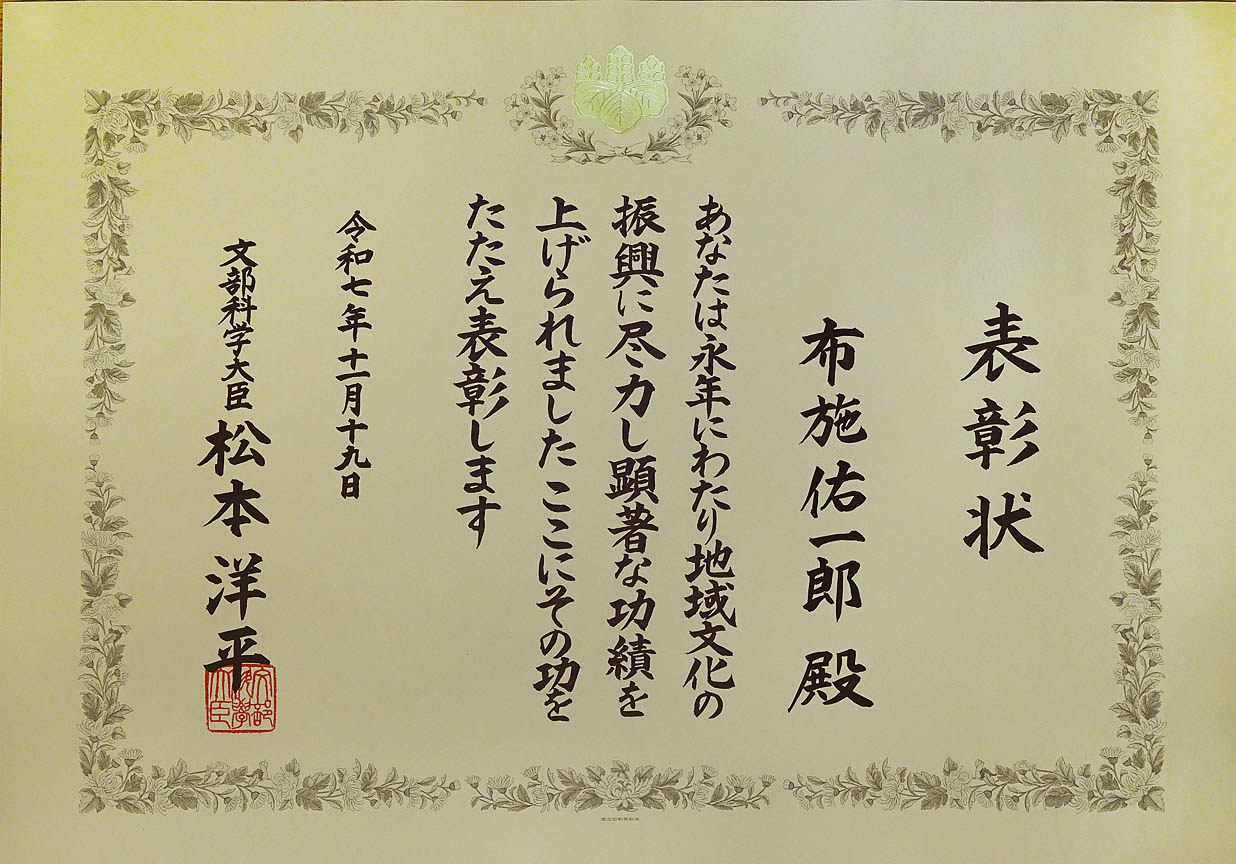 表彰状
布施佑一郎 殿
あなたは永年にわたり地域文化の
振興に尽力し顕著な功績を
上げられましたここにその功を
たたえ表彰します
令和七年十一月十九日
文部科学大臣 松本洋平